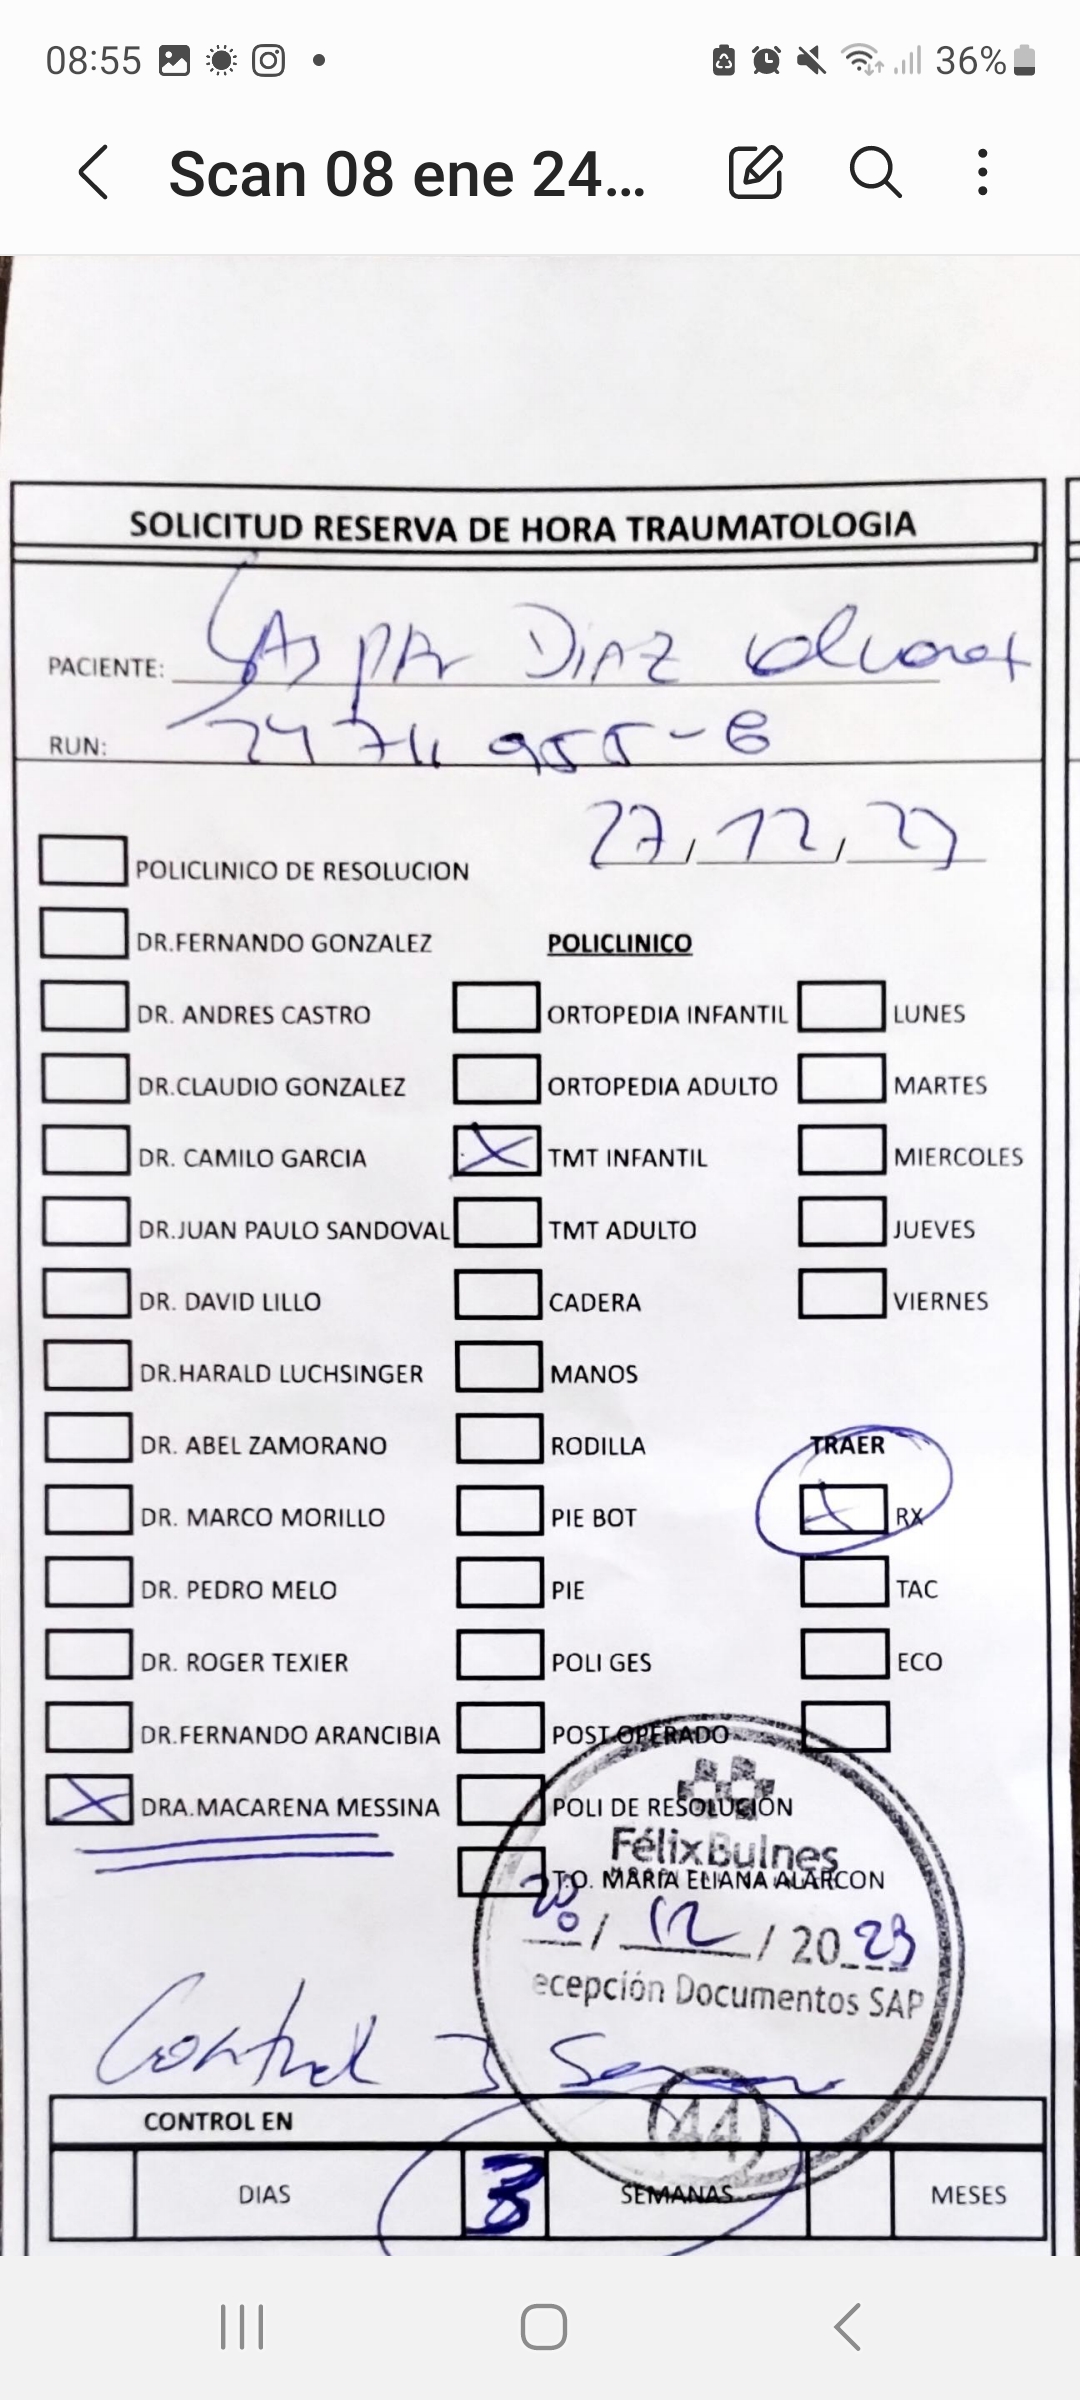 08:55 36%
Scan 08 ene 24...
SOLICITUD RESERVA DE HORA TRAUMATOLOGIA
PACIENTE: GASPAR DIAZ
RUN: 955-6
27, 12, 23
POLICLINICO DE RESOLUCION
DR.FERNANDO GONZALEZ POLICLINICO
DR. ANDRES CASTRO ORTOPEDIA INFANTIL LUNES
DR.CLAUDIO GONZALEZ ORTOPEDIA ADULTO MARTES
DR. CAMILO GARCIA X TMT INFANTIL MIERCOLES
DR.JUAN PAULO SANDOVAL TMT ADULTO JUEVES
DR. DAVID LILLO CADERA VIERNES
DR.HARALD LUCHSINGER MANOS
DR. ABEL ZAMORANO RODILLA TRAER
DR. MARCO MORILLO PIE BOT X RX
DR. PEDRO MELO PIE TAC
DR. ROGER TEXIER POLI GES ECO
DR.FERNANDO ARANCIBIA POST OPERADO
X DRA.MACARENA MESSINA POLI DE RESOLUCION
FélixBulnes
T.O. MARIA ELIANA ALARCON
/ 12 / 2023
ecepción Documentos SAP
Control 3 Semanas
44
CONTROL EN
DIAS 3 SEMANAS MESES